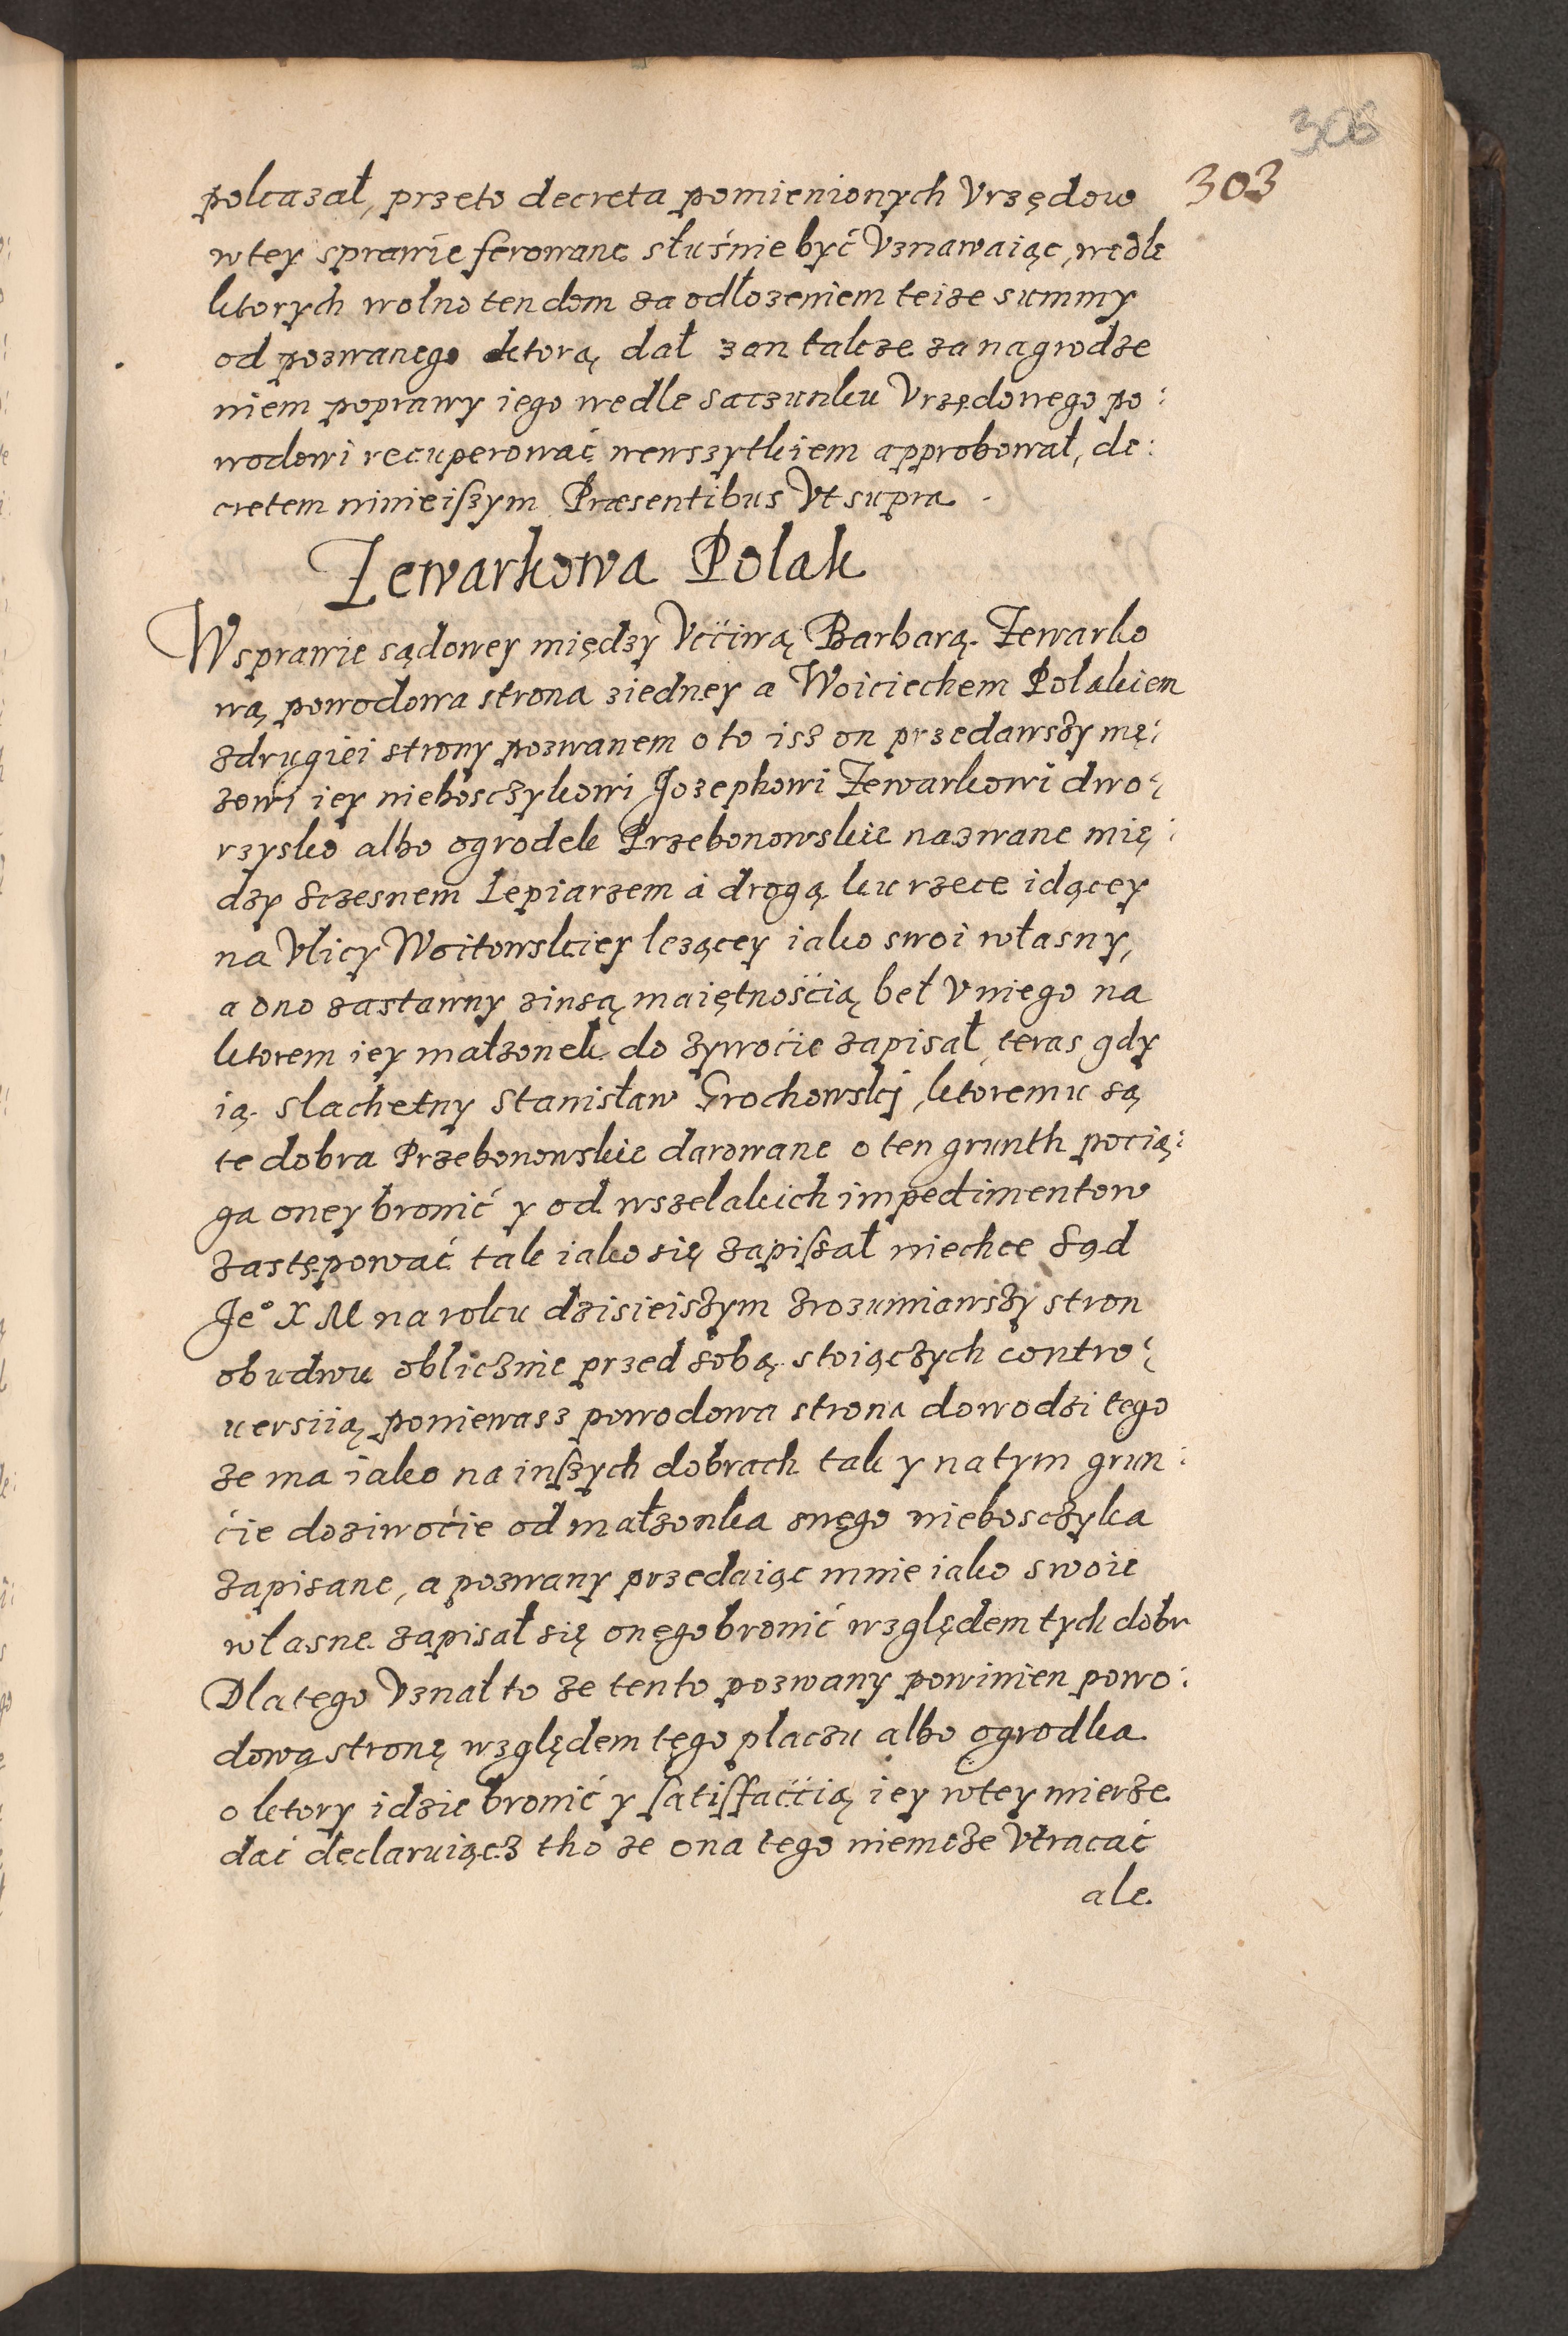 308
303
pokazał, przeto decreta pomienionych Vrzędow
wtey sprawie ferowane słuśnie być Vznawaiąc, wedle
ktorych wolno ten dom za odłozeniem teize summy
od pozwanego ktorą dał zan takze za nagrodze
niem poprawy iego wedle saczunku Vrzędowego po:
wodowi recuperować wewszytkiem approbował, de:
cretem ninieiszym Præsentibus Vt supra.
Lewarkowa Polak
Wsprawie sądowey między Vććiwą Barbarą Lewarko
wą powodowa strona ziedney a Woiciechem Polakiem
zdrugiei strony pozwanem oto isz on przedawszy mę:
zowi iey niebosczykowi Jozephowi Lewarkowi dwo:
rzysko albo ogrodek Przebonowskie nazwane mię:
dzy Sczesnem Lepiarzem á drogą ku rzece idącey
na Vlicy Woitowskiey lezącey iako swoi własny,
a ono zastawny zinszą maiętnośćią beł Vniego na
ktorem iey małzonek do zywoćie zapisał, teras gdy
ią slachetny Stanisław Grochowskj, ktoremu są
te dobra Przebonowskie darowane o ten grunth pocią:
ga oney bronić y od wszelakich impedimentow
zastępować tak iako się zapisał niechce Sąd
Je° X M na roku dzisieiszym zrozumiawszy stron
obudwu oblicznie przed sobą stoiączych contro:
uersiią, poniewasz powodowa strona dowodzi tego
ze ma iako na inszych dobrach tak y na tym grun:
ćie doziwoćie od małzonka swęgo niebosczyka
zapisane, a pozwany przedaiąc mnie iako swoie
własne zapisał się onęgo bronić względem tych dobr
Dla tego Vznał to ze tento pozwany powinien powo:
dową stronę względem tęgo placzu albo ogrodka
o ktory idzie bronić y satisfaććią iey wtey mierze
dać declaruiącz tho ze ona tego niemoze Vtracać
ale